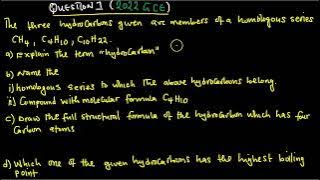 QUESTION 1 (2022 GCE)
The three hydrocarbons given are members of a homologous series
CH4, C4H10, C10H22.
a) Explain the term "hydrocarbon"
b) Name the
i) homologous series to which the above hydrocarbons belong.
ii) Compound with molecular formula C4H10
c) Draw the full structural formula of the hydrocarbon which has four
Carbon atoms
d) Which one of the given hydrocarbons has the highest boiling
point